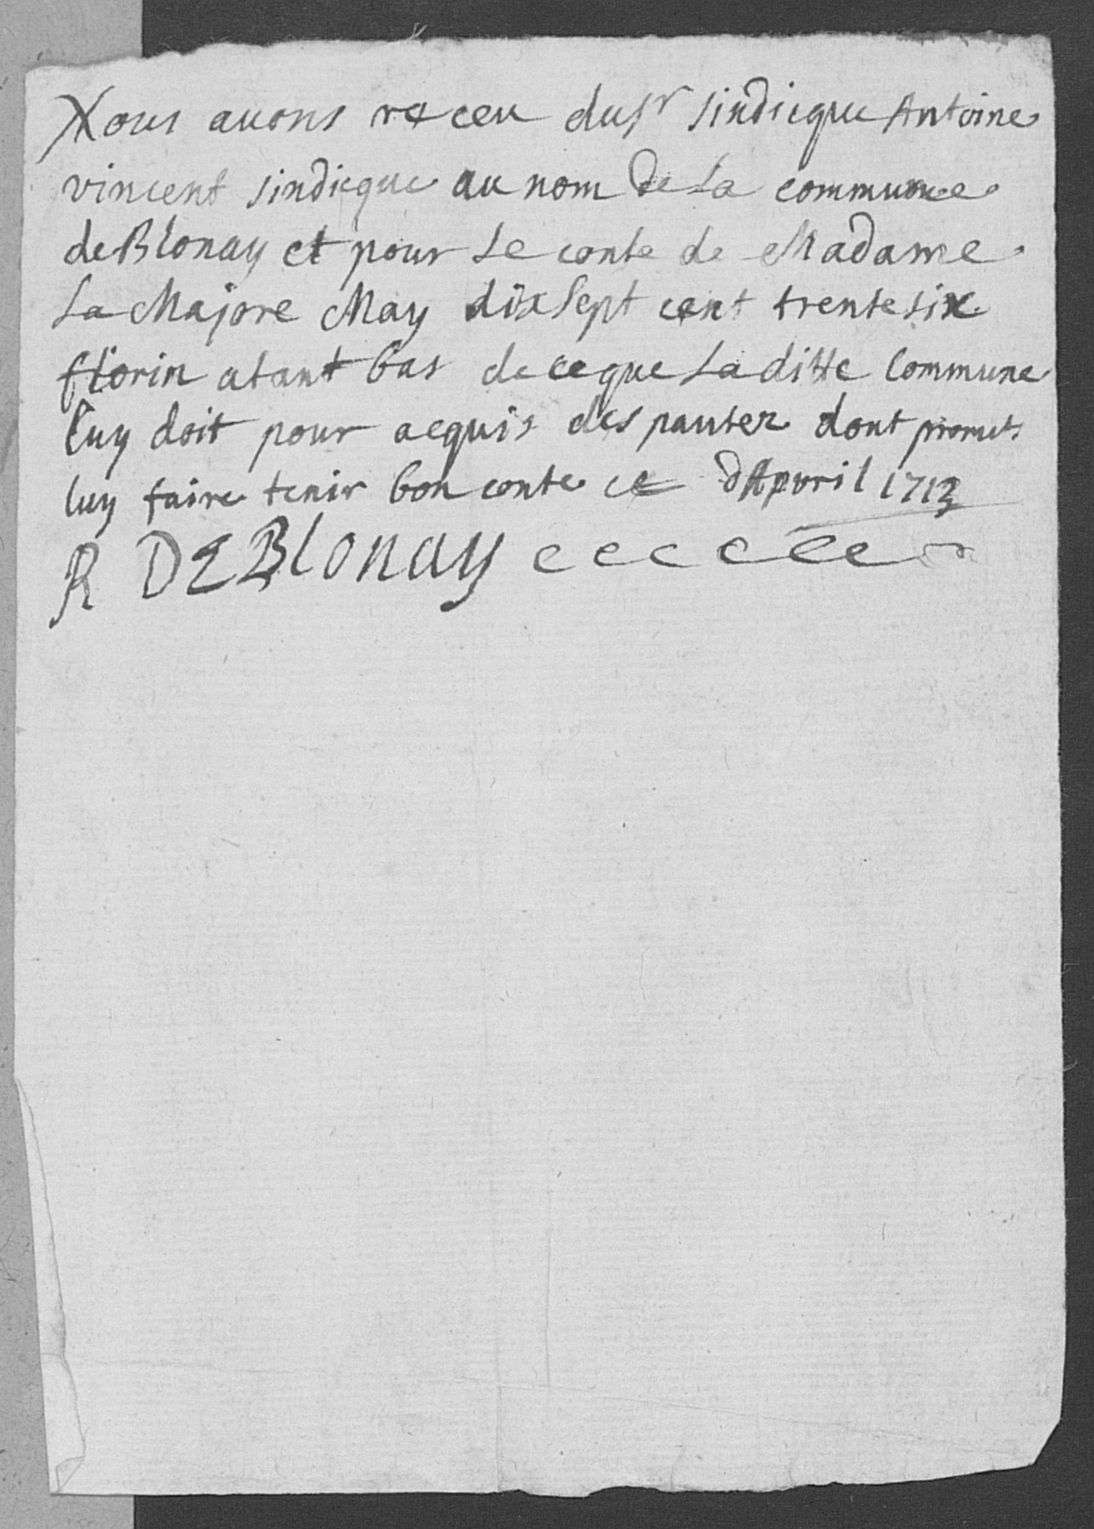 Nous auons receu du Sr sindicque Antoine
vincent sindicque au nom de La commune
de Blonay et pour Le conte de Madame
La Majore May dix sept cent trente six
florin atant bas de ce que La ditte Commune
Luy doit pour acquis des pauter dont promet
luy faire tenir bon conte ce dApvril 1713
R DE Blonay